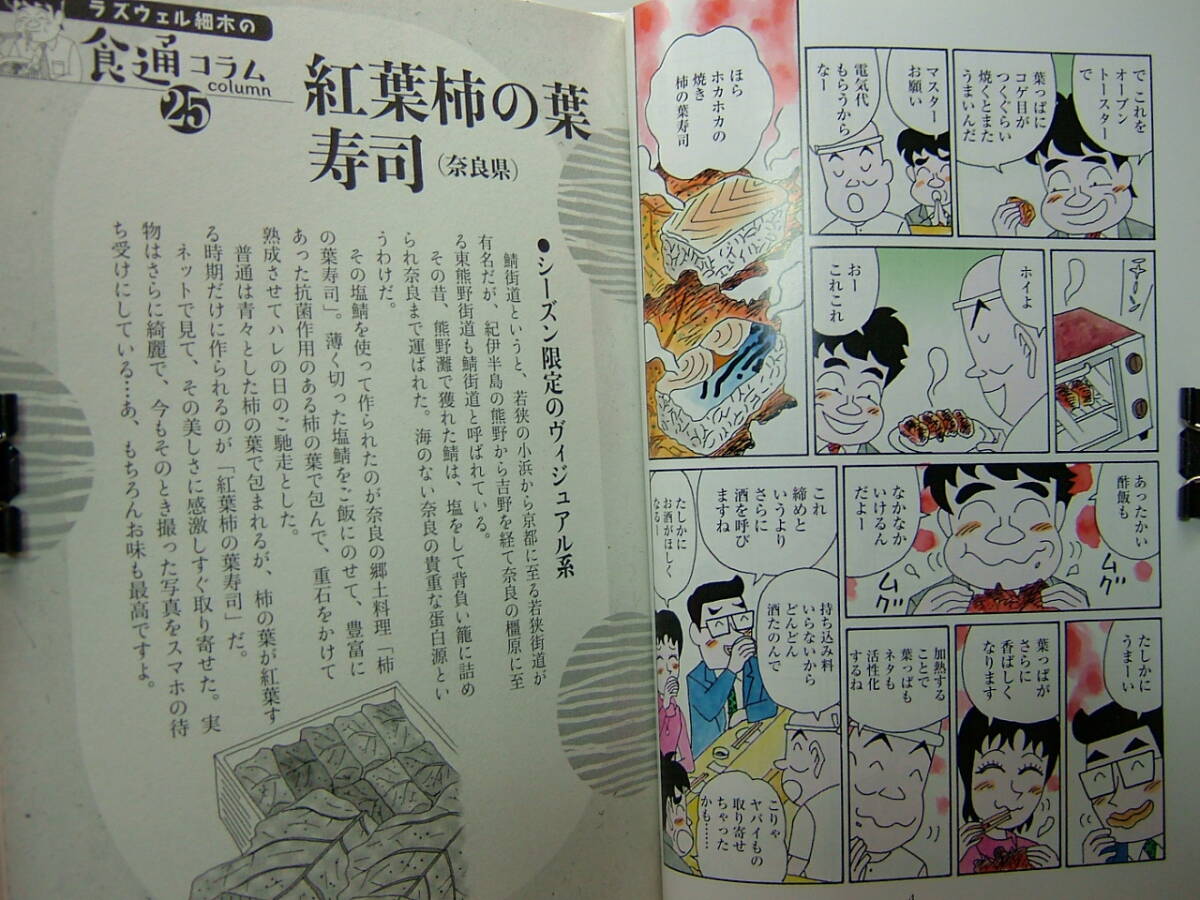 でこれを
オーブン
トースター
で
葉っぱに
コゲ目が
つくぐらい
焼くとまた
うまいんだ
マスター
お願い
電気代
もらうから
なー
チーン
ホイよ
おー
これこれ
ほら
ホカホカの
焼き
柿の葉寿司
あったかい
酢飯も
なかなか
いけるん
だよー
ムグ
ムグ
これ
締めと
いうより
さらに
酒を呼び
ますね
たしかに
お酒がほしく
なるー
たしかに
うまーい
葉っぱが
さらに
香ばしく
なります
加熱する
ことで
葉っぱも
ネタも
活性化
するね
持ち込み料
いらないから
どんどん
酒たのんで
こりゃ
ヤバイもの
取り寄せ
ちゃった
かも……
ラズウェル細木の
食通コラム
column
25
紅葉柿の葉
寿司(奈良県)
●シーズン限定のヴィジュアル系
鯖街道というと、若狭の小浜から京都に至る若狭街道が
有名だが、紀伊半島の熊野から吉野を経て奈良の橿原に至
る東熊野街道も鯖街道と呼ばれている。
その昔、熊野灘で獲れた鯖は、塩をして背負い籠に詰め
られ奈良まで運ばれた。海のない奈良の貴重な蛋白源とい
うわけだ。
その塩鯖を使って作られたのが奈良の郷土料理「柿
の葉寿司」。薄く切った塩鯖をご飯にのせて、豊富に
あった抗菌作用のある柿の葉で包んで、重石をかけて
熟成させてハレの日のご馳走とした。
普通は青々とした柿の葉で包まれるが、柿の葉が紅葉す
る時期だけに作られるのが「紅葉柿の葉寿司」だ。
ネットで見て、その美しさに感激しすぐ取り寄せた。実
物はさらに綺麗で、今もそのとき撮った写真をスマホの待
ち受けにしている…あ、もちろんお味も最高ですよ。